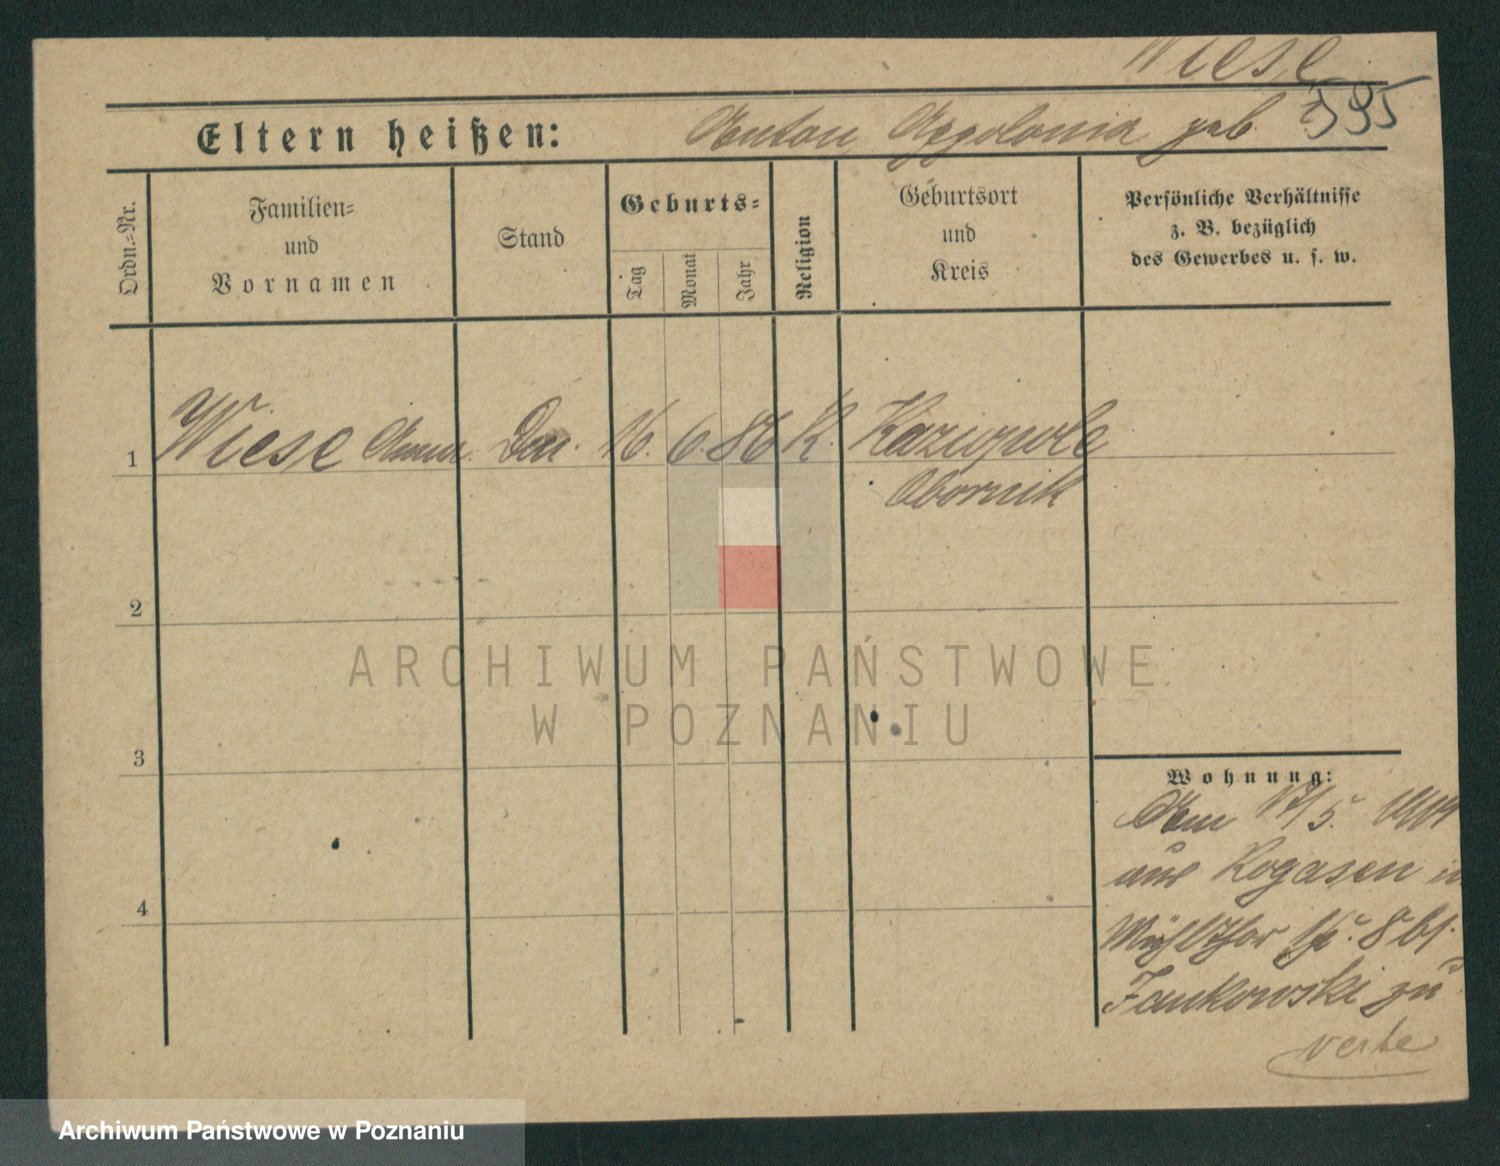 Wiese
595
Eltern heißen: Anton Appolonia geb.
Ordn.-Nr.
Familien-
und
Vornamen
Stand
Geburts-
Tag
Monat
Jahr
Religion
Geburtsort
und
Kreis
Persönliche Verhältnisse
z. B. bezüglich
des Gewerbes u. s. w.
1 Wiese 16. 6. 86 K.
Obornik
2
ARCHIWUM PAŃSTWOWE
W POZNANIU
3
4
Wohnung:
Am 17/5.
aus Rogasen in
8 bt.
Jankowski zu
verte
Archiwum Państwowe w Poznaniu